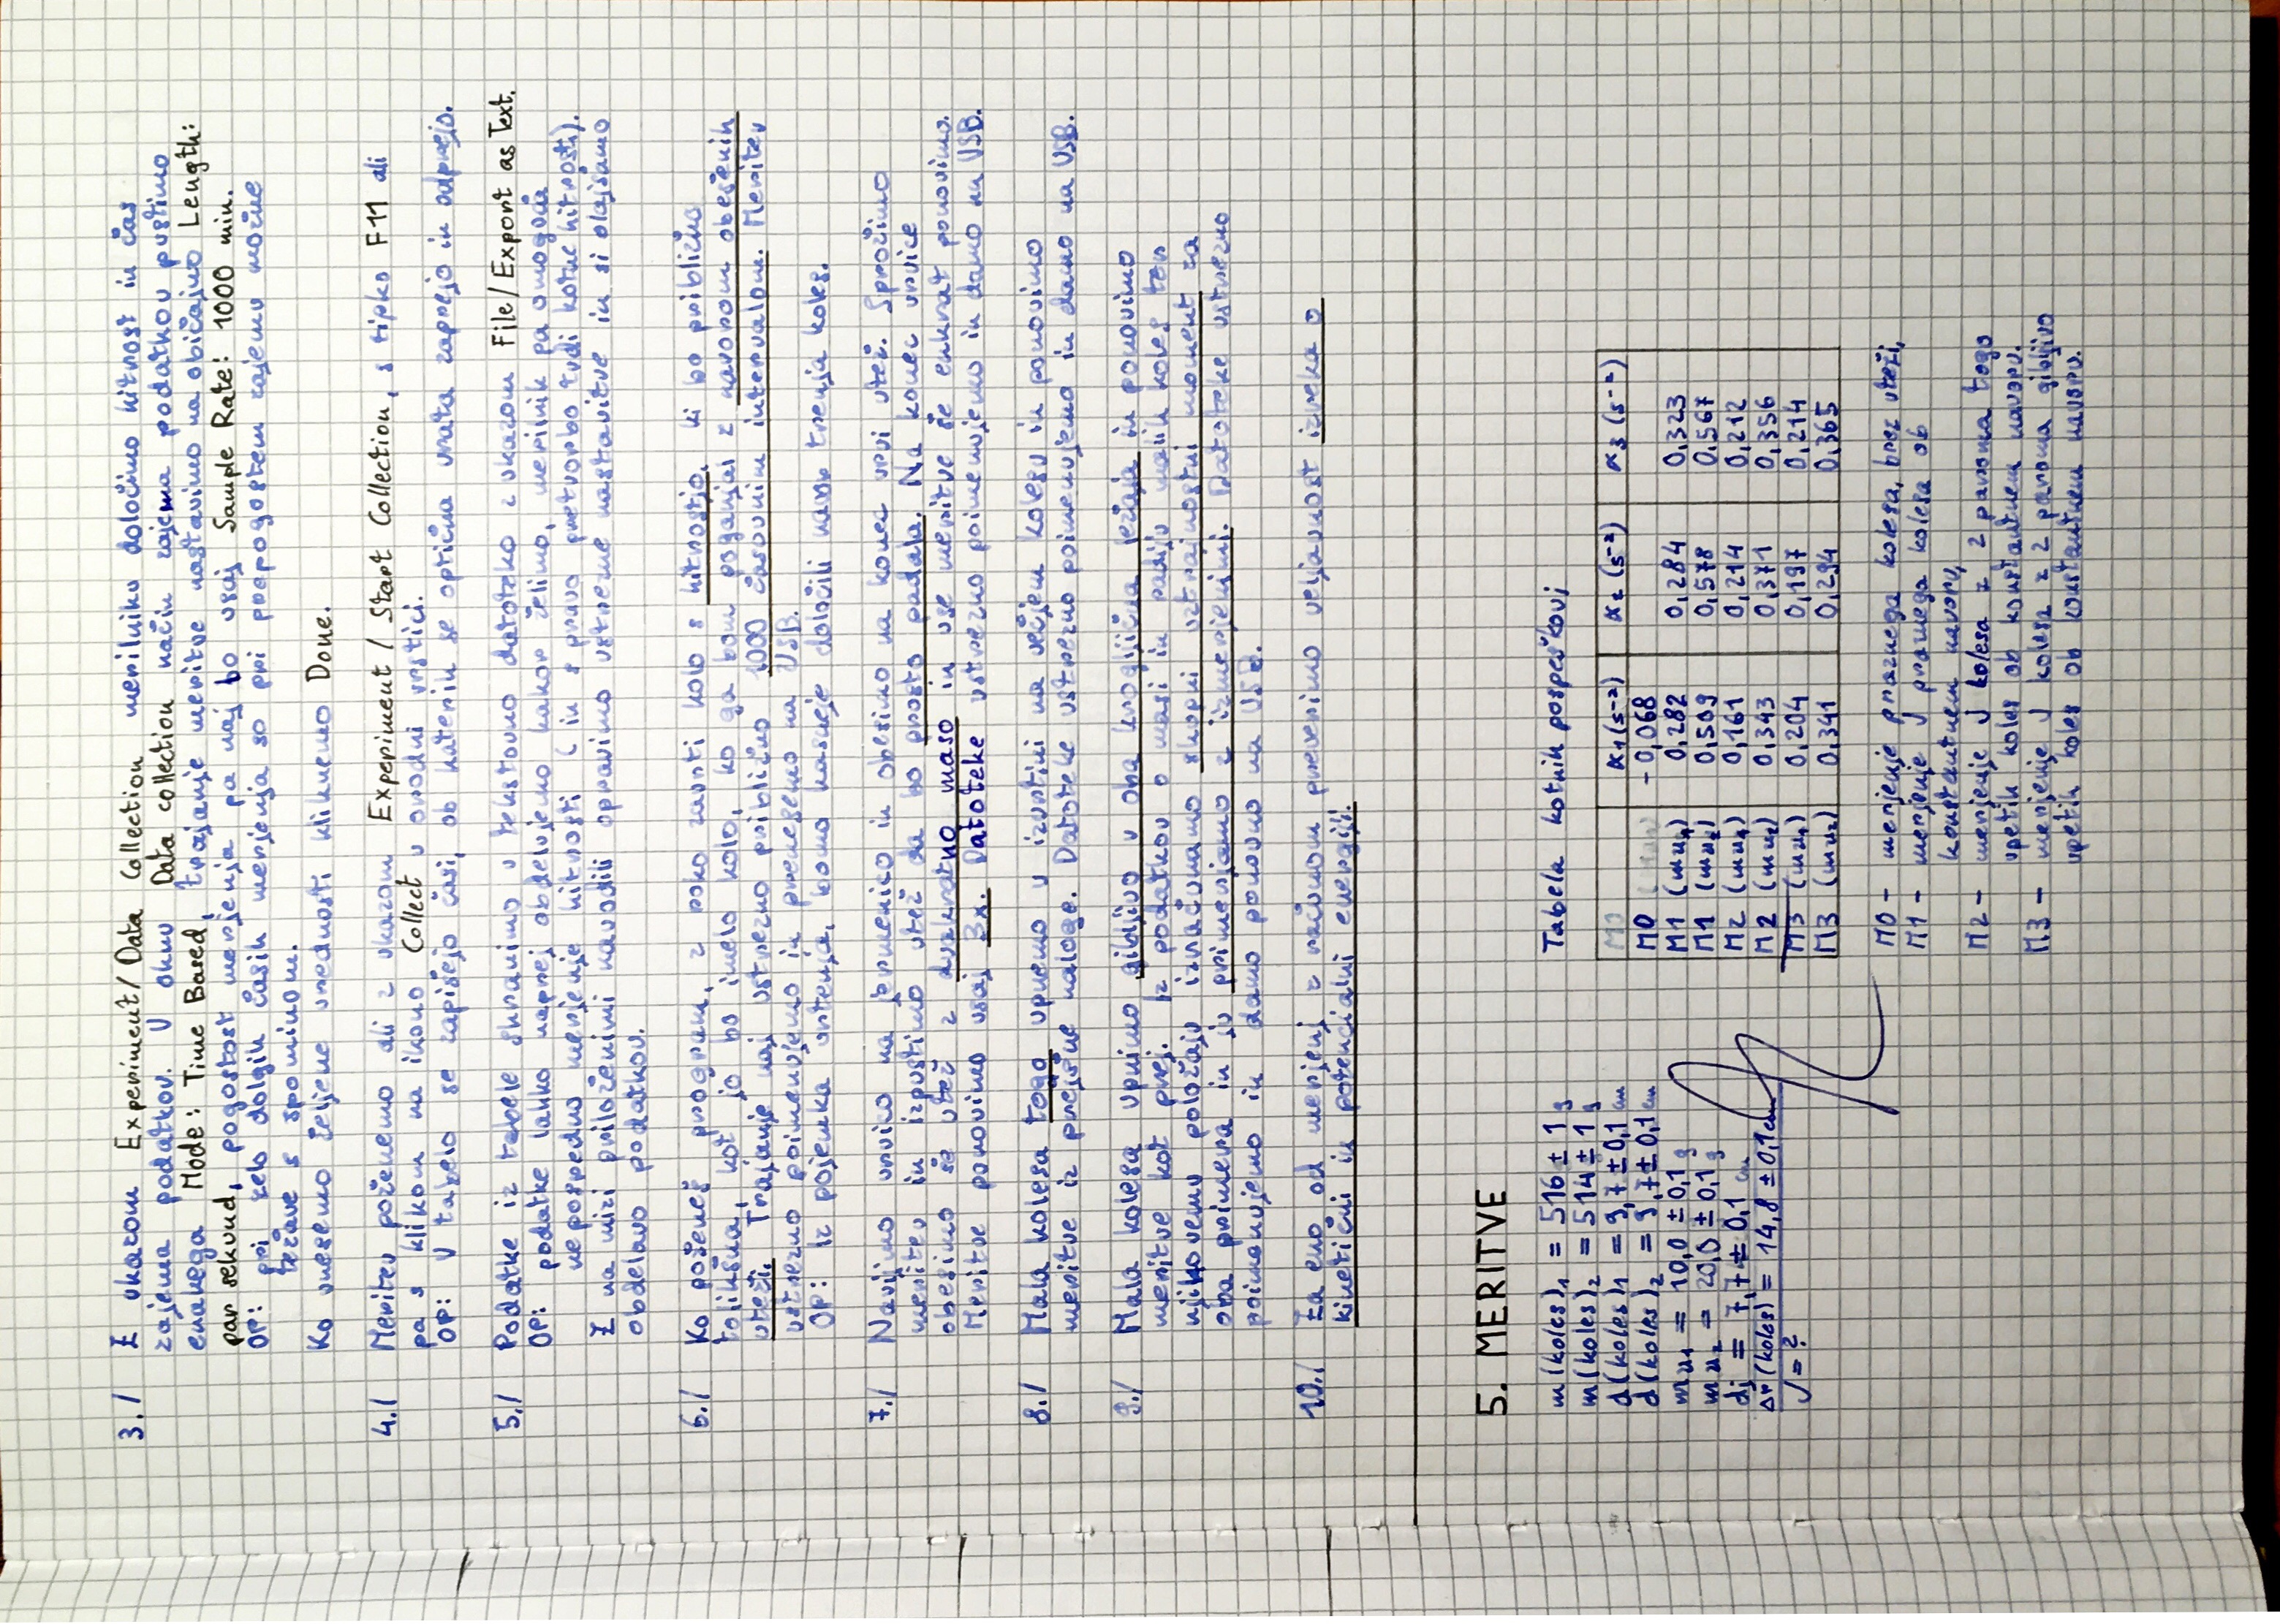 3./ Z ukazom Experiment/Data Collection merilniku določimo hitrost in čas
zajema podatkov. V oknu Data collection način zajema podatkov pustimo
enakega Mode: Time Based, trajanje meritve nastavimo na običajno Length:
par sekund, pogostost merjenja pa naj bo vsaj Sample Rate: 1000 min.
OP: pri zelo dolgih časih merjenja so pri prepogostem zajemu možne
težave s spominom.
Ko vnesemo željene vrednosti kliknemo Done.
4./ Meritev poženemo ali z ukazom Experiment / Start Collection, s tipko F11 ali
pa s klikom na ikono Collect v orodni vrstici.
OP: V tabelo se zapišejo časi, ob katerih se optična vrata zaprejo in odprejo.
5./ Podatke iz tabele shranimo v tekstovno datoteko z ukazom File/Export as Text.
OP: podatke lahko naprej obdelujemo kakor želimo, merilnik pa omogoča
neposredno merjenje hitrosti (in s pravo pretvorbo tudi kotne hitrosti).
Z na mizi priloženimi navodili opravimo ustrezne nastavitve in si olajšamo
obdelavo podatkov.
6./ Ko poženeš program, z roko zavrti kolo s hitrostjo, ki bo približno
tolikšna, kot jo bo imelo kolo, ko ga bom poganjal z navorom obešenih
uteži. Trajanje naj ustrezno približno 1000 časovnim intervalom. Meritev
ustrezno poimenujemo in prenesemo na USB.
OP: Iz pojemka vrtenja, bomo kasneje določili navor trenja koles.
7./ Navijmo vrvico na jermenico in obesimo na konec vrvi utež. Sprožimo
meritev in izpustimo utež da bo prosto padala. Na konec vrvice
obesimo še utež z dvakratno maso in vse meritve še enkrat ponovimo.
Meritve ponovimo vsaj 3x. Datoteke ustrezno poimenujemo in damo na USB.
8./ Mala kolesa togo vpnemo v izvrtini na večjem kolesu in ponovimo
meritve iz prejšne naloge. Datoteke ustrezno poimenujemo in damo na USB.
9./ Mala kolesa vpnimo gibljivo v oba kroglična ležaja in ponovimo
meritve kot prej. Iz podatkov o masi in radiju malih koles ter
njihovemu položaju izračunamo skupni vztrajnostni moment za
oba primera in ju primerjamo z izmerjenimi. Datoteke ustrezno
poimenujemo in damo ponovno na USB.
10./ Za eno od merjenj z računom preverimo veljavnost izreka o
kinetični in potencialni energiji.
5. MERITVE
m(koles)₁ = 516 ± 1 g
m(koles)₂ = 514 ± 1 g
d(koles)₁ = 9,7 ± 0,1 cm
d(koles)₂ = 9,7 ± 0,1 cm
mu₁ = 10,0 ± 0,1 g
mu₂ = 20,0 ± 0,1 g
dj = 7,7 ± 0,1 cm
Δr(koles) = 14,8 ± 0,1 cm
J = ?
Tabela kotnih pospeškov
M0 α₁(s⁻²) α₂ (s⁻²) α₃ (s⁻²)
M0 -0,068
M1 (mu₁) 0,282 0,284 0,323
M1 (mu₂) 0,509 0,578 0,567
M2 (mu₁) 0,161 0,214 0,212
M2 (mu₂) 0,343 0,371 0,356
M3 (mu₁) 0,204 0,197 0,214
M3 (mu₂) 0,341 0,294 0,365
M0 – merjenje praznega kolesa, brez uteži,
M1 – merjenje J praznega kolesa ob
konstantnem navoru,
M2 – merjenje J kolesa z 2 paroma togo
vpetih koles ob konstantnem navoru.
M3 – merjenje J kolesa z 2 paroma gibljivo
vpetih koles ob konstantnem navoru.